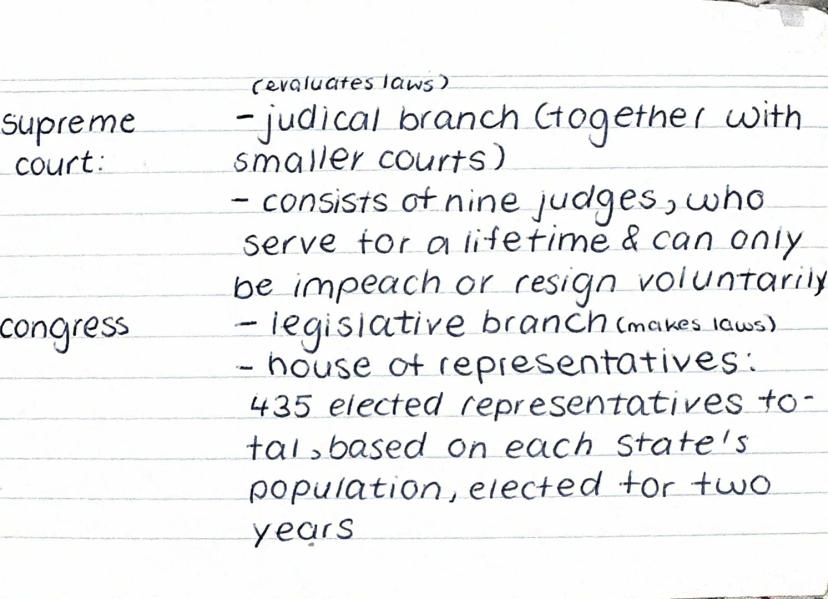 (evaluates laws)
supreme - judical branch (together with
court: smaller courts)
- consists of nine judges, who
serve for a lifetime & can only
be impeach or resign voluntarily
congress - legislative branch (makes laws)
- house of representatives:
435 elected representatives to-
tal, based on each state's
population, elected for two
years